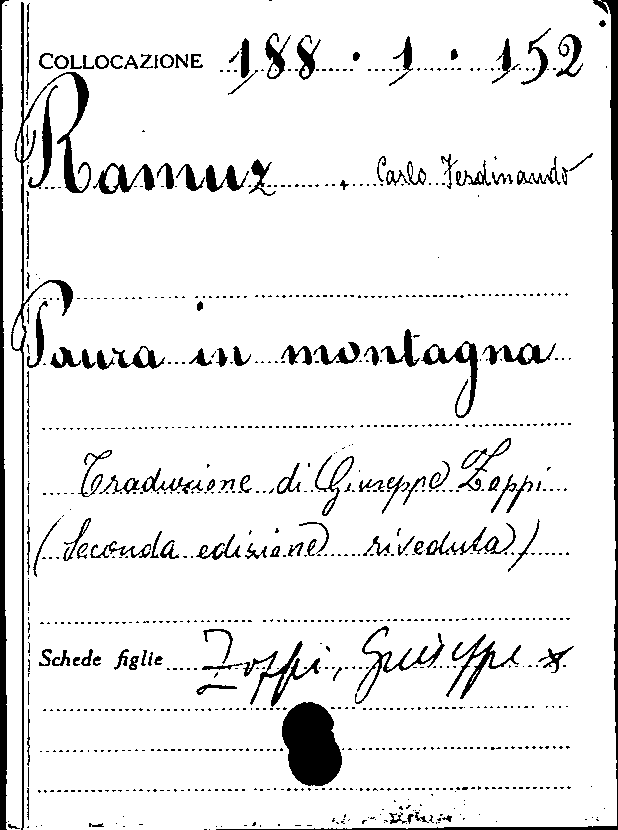 COLLOCAZIONE 188 · 1 · 152
Ramuz . Carlo Ferdinando
Paura in montagna
Traduzione di Giuseppe Zoppi
(Seconda edizione riveduta)
Schede figlie Zoppi, Giuseppe *